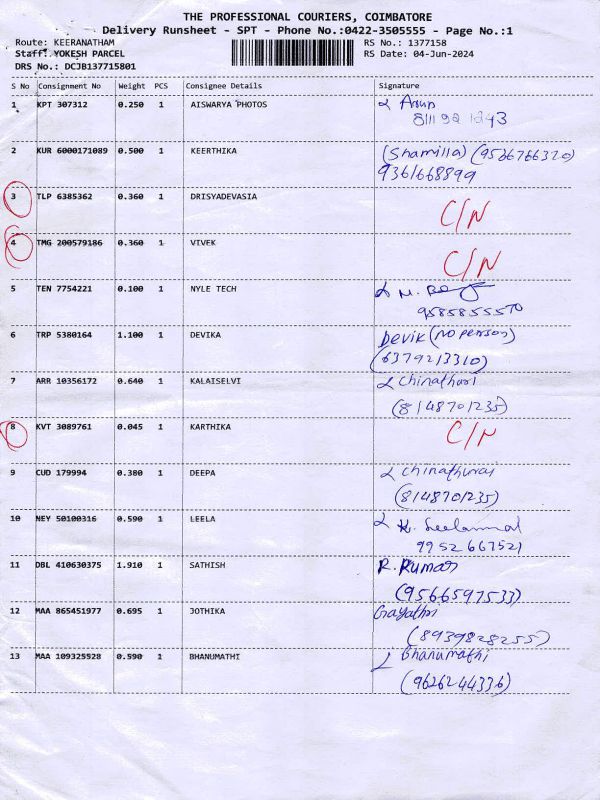 THE PROFESSIONAL COURIERS, COIMBATORE
Delivery Runsheet - SPT - Phone No.:0422-3505555 - Page No.:1
Route: KEERANATHAM RS No.: 1377158
Staff: YOKESH PARCEL RS Date: 04-Jun-2024
DRS No.: DCJB137715801
S No Consignment No Weight PCS Consignee Details Signature
1 KPT 307312 0.250 1 AISWARYA PHOTOS Arun
8111 92 1243
2 KUR 6000171089 0.500 1 KEERTHIKA (Shamilla) (9526766320)
9361668899
3 TLP 6385362 0.360 1 DRISYADEVASIA C/N
4 TMG 200579186 0.360 1 VIVEK C/N
5 TEN 7754221 0.100 1 NYLE TECH
9585855570
6 TRP 5380164 1.100 1 DEVIKA Devik (no person)
(6379213310)
7 ARR 10356172 0.640 1 KALAISELVI
(8148701235)
8 KVT 3089761 0.045 1 KARTHIKA C/N
9 CUD 179994 0.380 1 DEEPA Chinathuray
(8148701235)
10 NEY 50100316 0.590 1 LEELA
9952667521
11 DBL 410630375 1.910 1 SATHISH R. Kumar
(9566597533)
12 MAA 865451977 0.695 1 JOTHIKA Gayathri
(8939828255)
13 MAA 109325528 0.590 1 BHANUMATHI Bhanumathi
(9626244336)